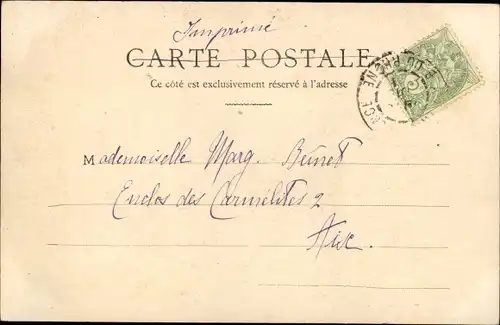 Imprimé
CARTE POSTALE
Ce côté est exclusivement réservé à l'adresse
DU RHONE
5
Mademoiselle Marg. Brunet
Enclos des Carmélites 2
Aix.